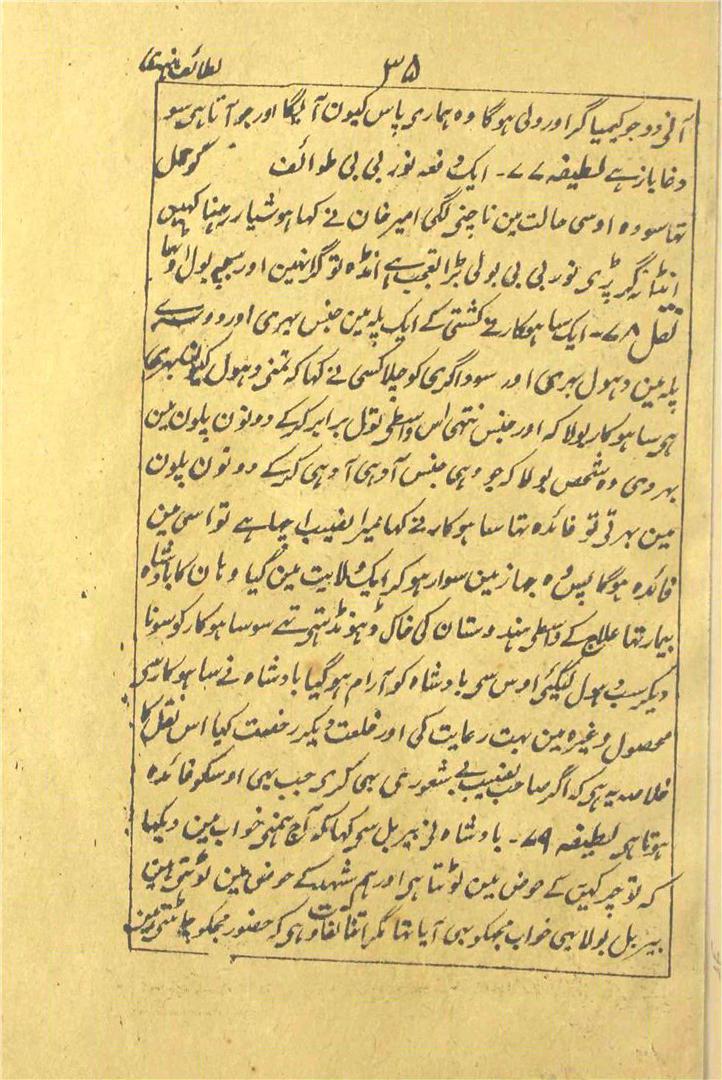 لطائف ہندی ۳۵
آنی دو جو کیمیاگر اور ولی ہوگا وہ ہماری پاس کیون آئیگا اور جو آتا ہی سو
دغاباز ہے لطیفہ ۷۷۔ ایک دفعہ نور بی بی طوائف کو حمل
تھا سو وہ اوسی حالت مین ناچنی لگی امیر خان نے کہا ہوشیار رہنا کہین
انڈا نہ گر پڑی نور بی بی بولی بڑا تعجب ہے انڈہ تو گرا نہین اور بچہ بول اوٹھا
نقل ۷۸۔ ایک ساہوکار نے کشتی کے ایک پلہ مین جنس بہری اور دوسرے
پلہ مین دہول بہری اور سوداگری کو چلا کسی نے کہا کہ تمنی دہول کیون بہری
ہی ساہوکار بولا کہ اور جنس نتہی اس واسطی تول برابر کر کے دونون پلون مین
بہر دی وہ شخص بولا کہ جو وہی جنس آدہی آدہی کر کے دونون پلون
مین بہرتی تو فائدہ تہا ساہوکار نے کہا میرا نصیب اچہا ہے تو اسی مین
فائدہ ہوگا پس وہ جہاز مین سوار ہو کر ایک ولایت مین گیا وہان کا بادشاہ
بیمار تہا علاج کے واسطی ہندوستان کی خاک ڈہونڈتی تہے سو ساہوکار کو سونا
دیکر سب دہول لیگئی اوس سی بادشاہ کو آرام ہو گیا بادشاہ نے ساہوکار سی
محصول وغیرہ مین بہت رعایت کی اور خلعت دیکر رخصت کیا اس نقل کا
خلاصہ یہ ہی کہ اگر صاحب نصیب بے شعوری بہی کری جب بہی اوسکو فائدہ
ہوتا ہی لطیفہ ۷۹۔ بادشاہ نے بیربل سی کہا کہ آج ہمنی خواب مین دیکہا
کہ تو چرکین کے حوض مین لوٹتا ہی اور ہم شہد کے حوض مین لوٹتی ہین
بیربل بولا یہی خواب مجہکو بہی آیا تہا مگر اتنا تفاوت ہی کہ حضور مجہکو چاٹتی ہین